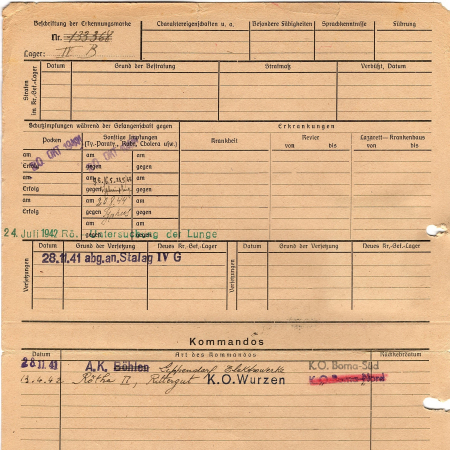 Beschriftung der Erkennungsmarke
Charaktereigenschaften u. a.
Besondere Fähigkeiten
Sprachkenntnisse
Führung
Nr. 133368
Lager: III B
Strafen im Kr.-Gef.-Lager
Datum
Grund der Bestrafung
Strafmaß
Verbüßt, Datum
Schutzimpfungen während der Gefangenschaft gegen
Erkrankungen
Pocken
Sonstige Impfungen
(Ty.-Paraty., Ruhr, Cholera usw.)
Krankheit
Revier
von bis
Lazarett—Krankenhaus
von bis
am
am
Erfolg
gegen
am
am
Erfolg
gegen
am
am
Erfolg
gegen
am
am
Erfolg
gegen
OKT 1941
OKT
24. Juli 1942 Rö.-Untersuchung der Lunge
Versetzungen
Datum
Grund der Versetzung
Neues Kr.-Gef.-Lager
Versetzungen
Datum
Grund der Versetzung
Neues Kr.-Gef.-Lager
28.11.41 abg.an.Stalag IV G
Kommandos
Datum
Art des Kommandos
Rückkehrdatum
28.11.41 A.K. Böhlen Elektrowerke K.O. Borna-Süd
13.4.42 Rötha II, Rittergut K.O.Wurzen K.O. Borna-Nord